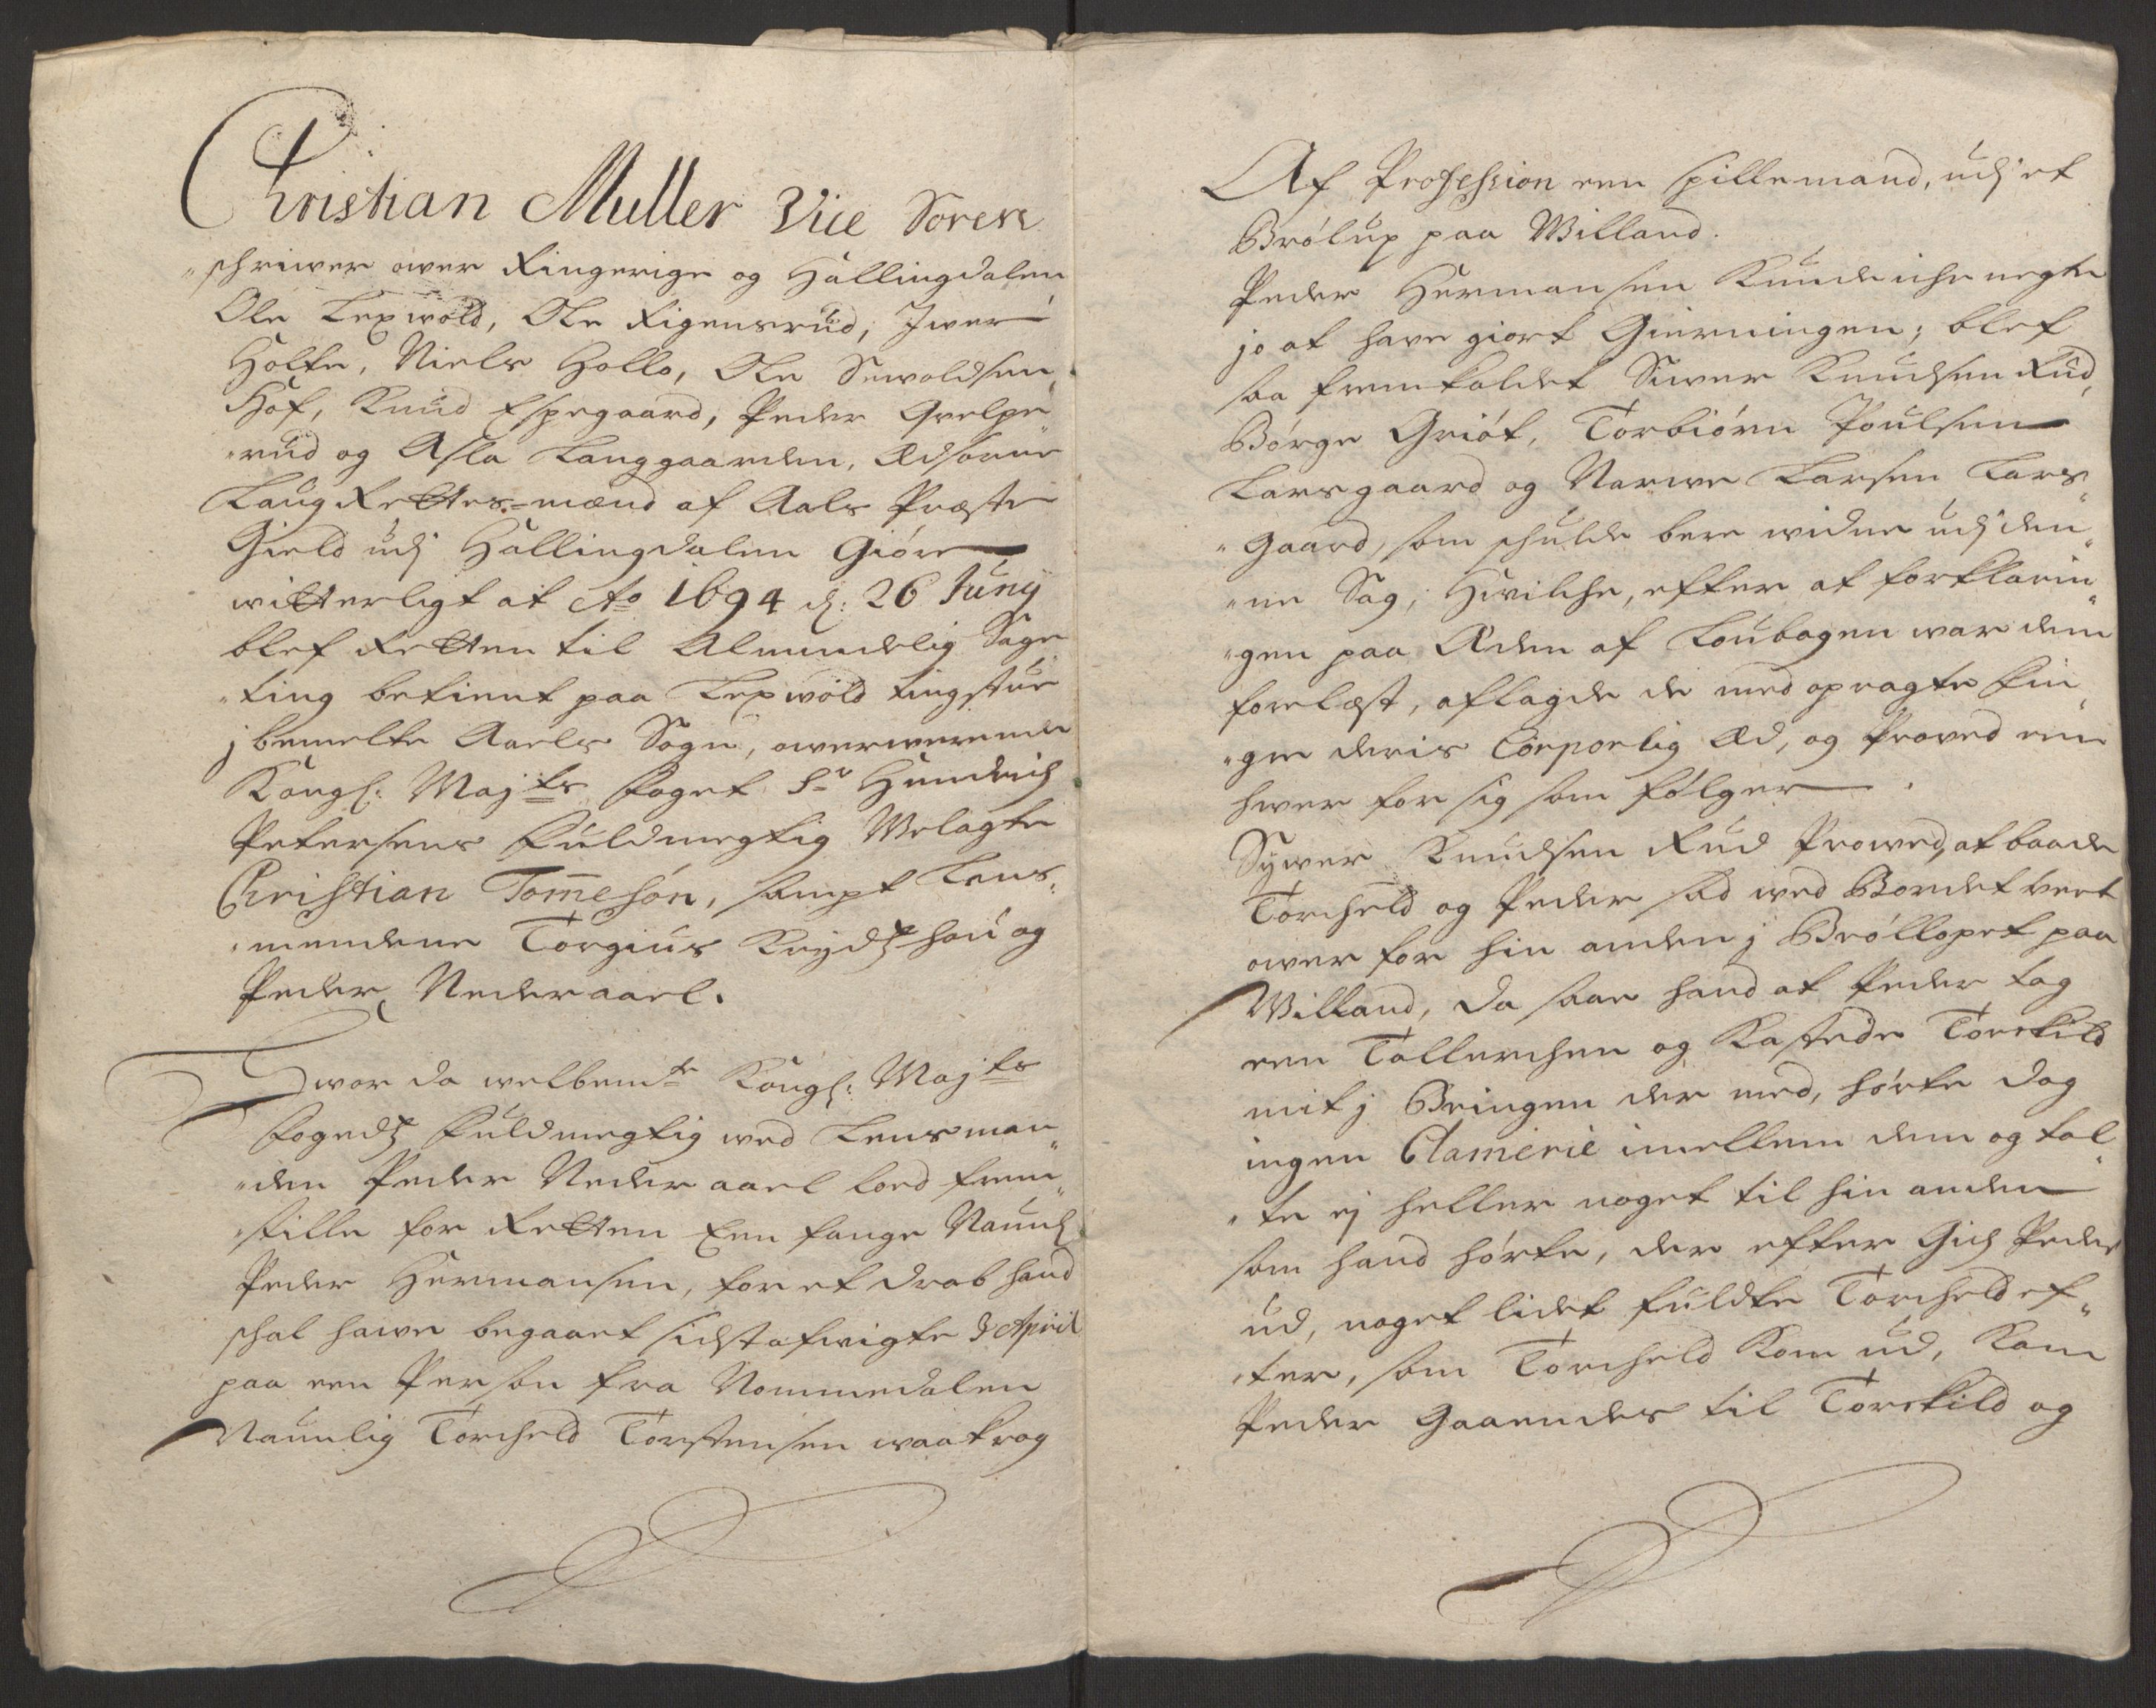 Christian Muller Vice Soren
"schriwer ower Ringerige og Hallingdalen
Ole Lexwold, Ole Rigensrud, Iwer
Holte, Niels Hollo, Ole Sewoldsen
Hof, Knud Espegaard, Peder Grelpe
"rud og Asla Langgaarden, Edsorne
Laug Rettes-mænd af Aals Præste
Gield udj Hallingdalen Giöre
witterligt at Ao 1694 d: 26 Juny
blef Retten til Almindelig Sage
"ting betient paa Lexwold tingstue
j bemelte Aaels Sogn, owerwerende
Kongl: Majts Foget Sr Hendrich
Petersens Fuldmegtig Welagte
Christian Tommesön, sampt Lens"
"mendene Torgius hou og
Peder Nederaael.
war da welbemte Kongl: Majts
Fogedz Fuldmegtig wed Lensman"
"den Peder Nederaael loed frem"
"stille for Retten Een fange Naunl
Peder Hermansen, for et drab hand
schal hawe begaaet sidst afwigte 3 April
paa een Person fra Nommedalen
Naunlig Torcheld Torstensen waakrog
Af Profession een spillemand, udj et
Brölup paa Willand.
Peder Hermansen Kunde iche negte
jo at have giort Gierningen; blef
saa fremkaldet Siwer Knudsen Rud,
Börge Griöt, Torbiörn Poulsen
Larsgaard og Narwe Larsen Lars"
"gaard, som schulde bere widne udj den"
"ne Sag, Hwilche, efter at forklarin"
"gen paa Eden af Loubogen war dem
forelæst, aflagde de med opragte Fin"
"gre deris Corporlig Ed, og Proved een
hwer for sig som fölger
Sywer Knudsen Rud Prowed, at baade
Torcheld og Peder sad wed Bordet twert
ower for hin anden j Bröllopet paa
Willand, da saae hand at Peder tog
een Tallerchen og Kastede Torckild
mit j Bringen der med, hörte dog
ingen Clamerie imellem dem og tal"
"te ej heller noget til hin anden
som hand hörte, der efter Gich Peder
ud, noget lidet fuldte Torcheld ef"
"ter, som Torcheld Kom ud, Kom
Peder Gaaendes til Torckild og